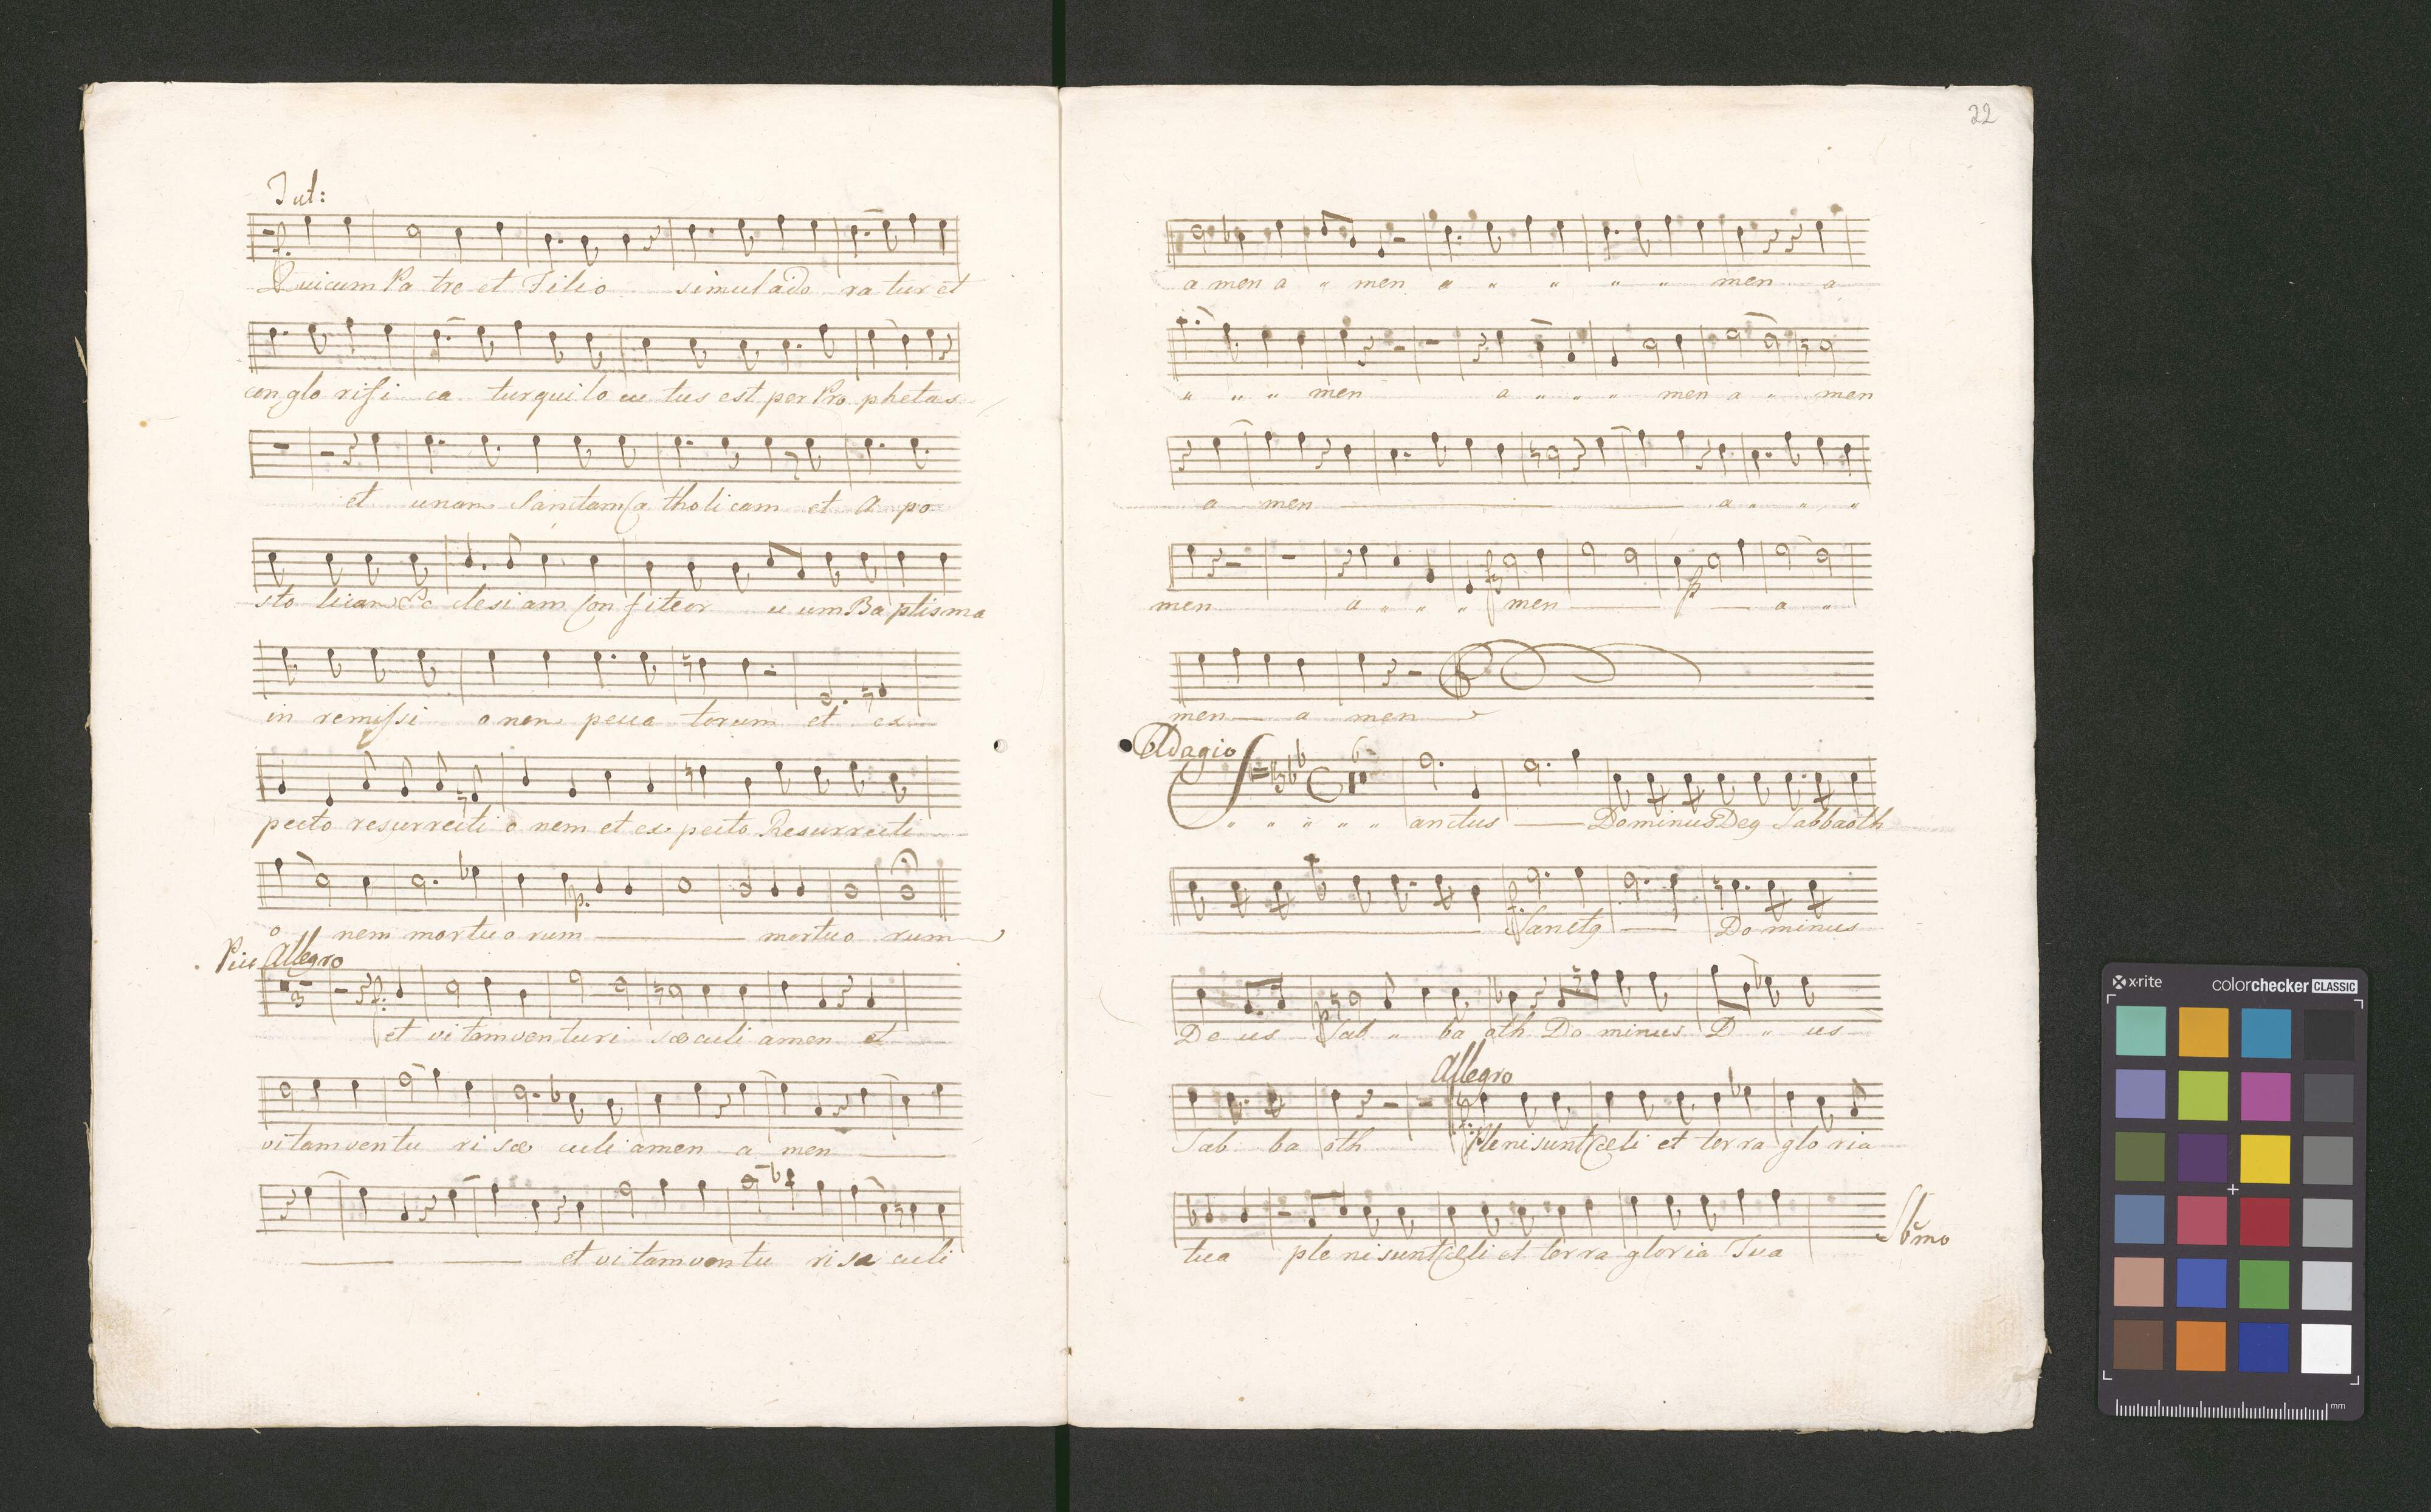 Tut:
Qui cum Pa tre et Filio simul ado ra tur et
con glo rifi ca tur qui lo cu tus est per Pro phetas
et unam Sanctam Ca tholi cam et A po
sto licam Ec clesi am Con fiteor u um Ba ptisma
in remissi o nem pecca torum et ex
pecto resurrecti o nem et ex pecto Resurrecti
p.
o nem mortu o rum mortuo rum
Piu Allegro
3
et vi tam ven turi sæ culi amen et
vi tam ven tu ri sæ culi amen a men
et vi tam ven tu ri sæ culi
22
a men a " men a " " " " men a
" " " men a " " " men a " men
a men a " " "
p
men a " " " men a "
men a men
Adagio
C 6
" " " " " anctus Dominus Deg Sabbaoth
Sanctg Do minus
De us Sab " ba oth Do minus D " us
Allegro
Sab ba oth Pleni sunt Cæli et ter ra glo ria
tua ple ni sunt Cæli et ter ra gloria Tua
x·rite colorchecker CLASSIC
mm